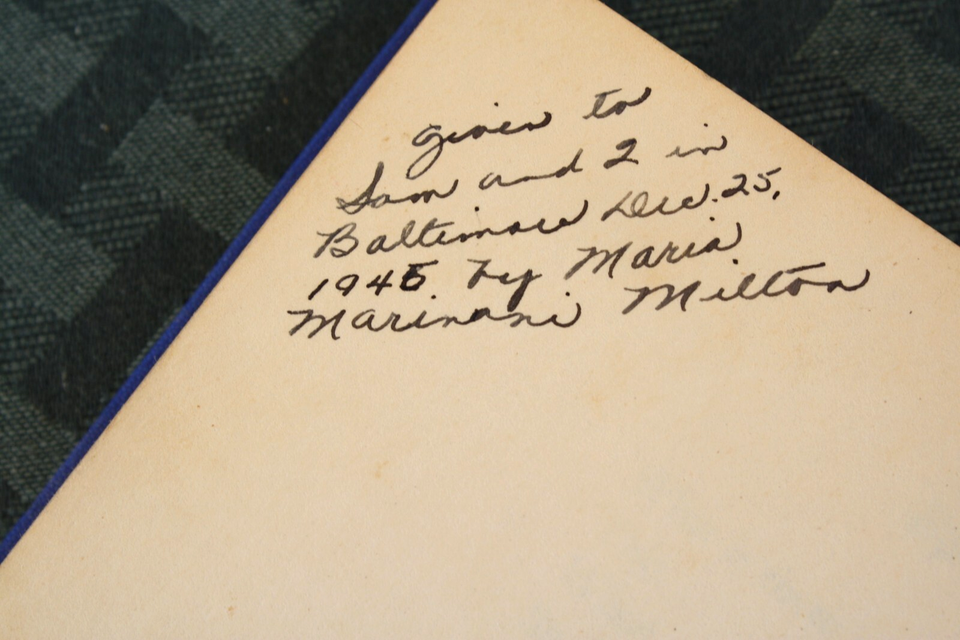 Given to
Sam and 2 in
Baltimore Dec. 25,
1945 by Maria
Marinani Milton